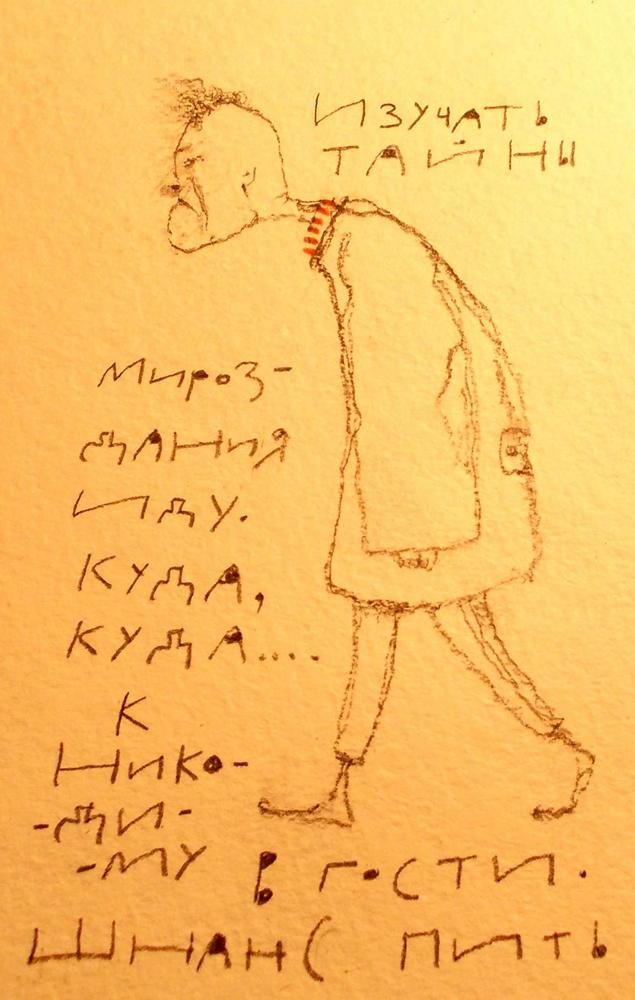 ИЗУЧАТЬ
ТАЙНЫ
МИРОЗ-
ДАНИЯ
ИДУ.
КУДА,
КУДА....
К
НИКО-
-ДИ-
-МУ В ГОСТИ.
ШНАНС ПИТЬ